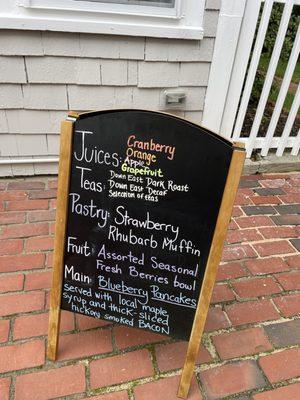 Cranberry
Juices: Orange
Apple
Grapefruit
Teas: Down East Dark Roast
Down East Decaf
Selection of teas
Pastry: Strawberry
Rhubarb Muffin
Fruit: Assorted Seasonal
Fresh Berries bowl
Main: Blueberry Pancakes
served with local maple
syrup and thick sliced
hickory smoked BACON